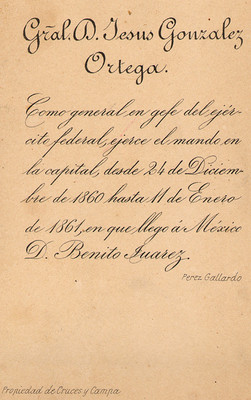 Gral. D. Jesús González
Ortega.
Como general en gefe del ejér-
cito federal, ejerce el mando en
la capital, desde 24 de Diciem-
bre de 1860 hasta 11 de Enero
de 1861, en que llegó á México
D. Benito Juarez.
Perez Gallardo
Propiedad de Cruces y Campa